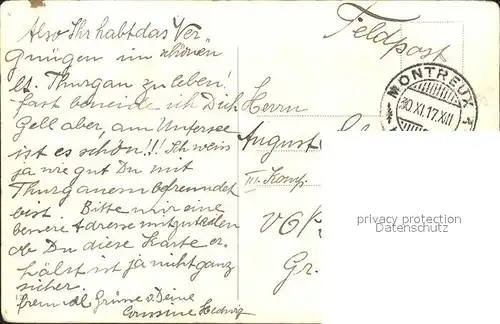 Also Ihr habt das Ver-
gnügen im schönen
Kt. Thurgau zu leben!
fast beneide ich Dich
Gell aber, am Untersee
ist es schön!!! Ich weis
ja wie gut Du mit
Thurganern befreundet
bist. Bitte mir eine
bessere Adresse mitzuteilen
ob Du diese Karte er-
hälst ist ja nicht ganz
sicher.
freundl. Grüsse v. Deine
Cousine Hedwig
Feldpost
MONTREUX
30.XI.17.XII
Herrn
August
III. Komp.
Gr.
privacy protection
Datenschutz